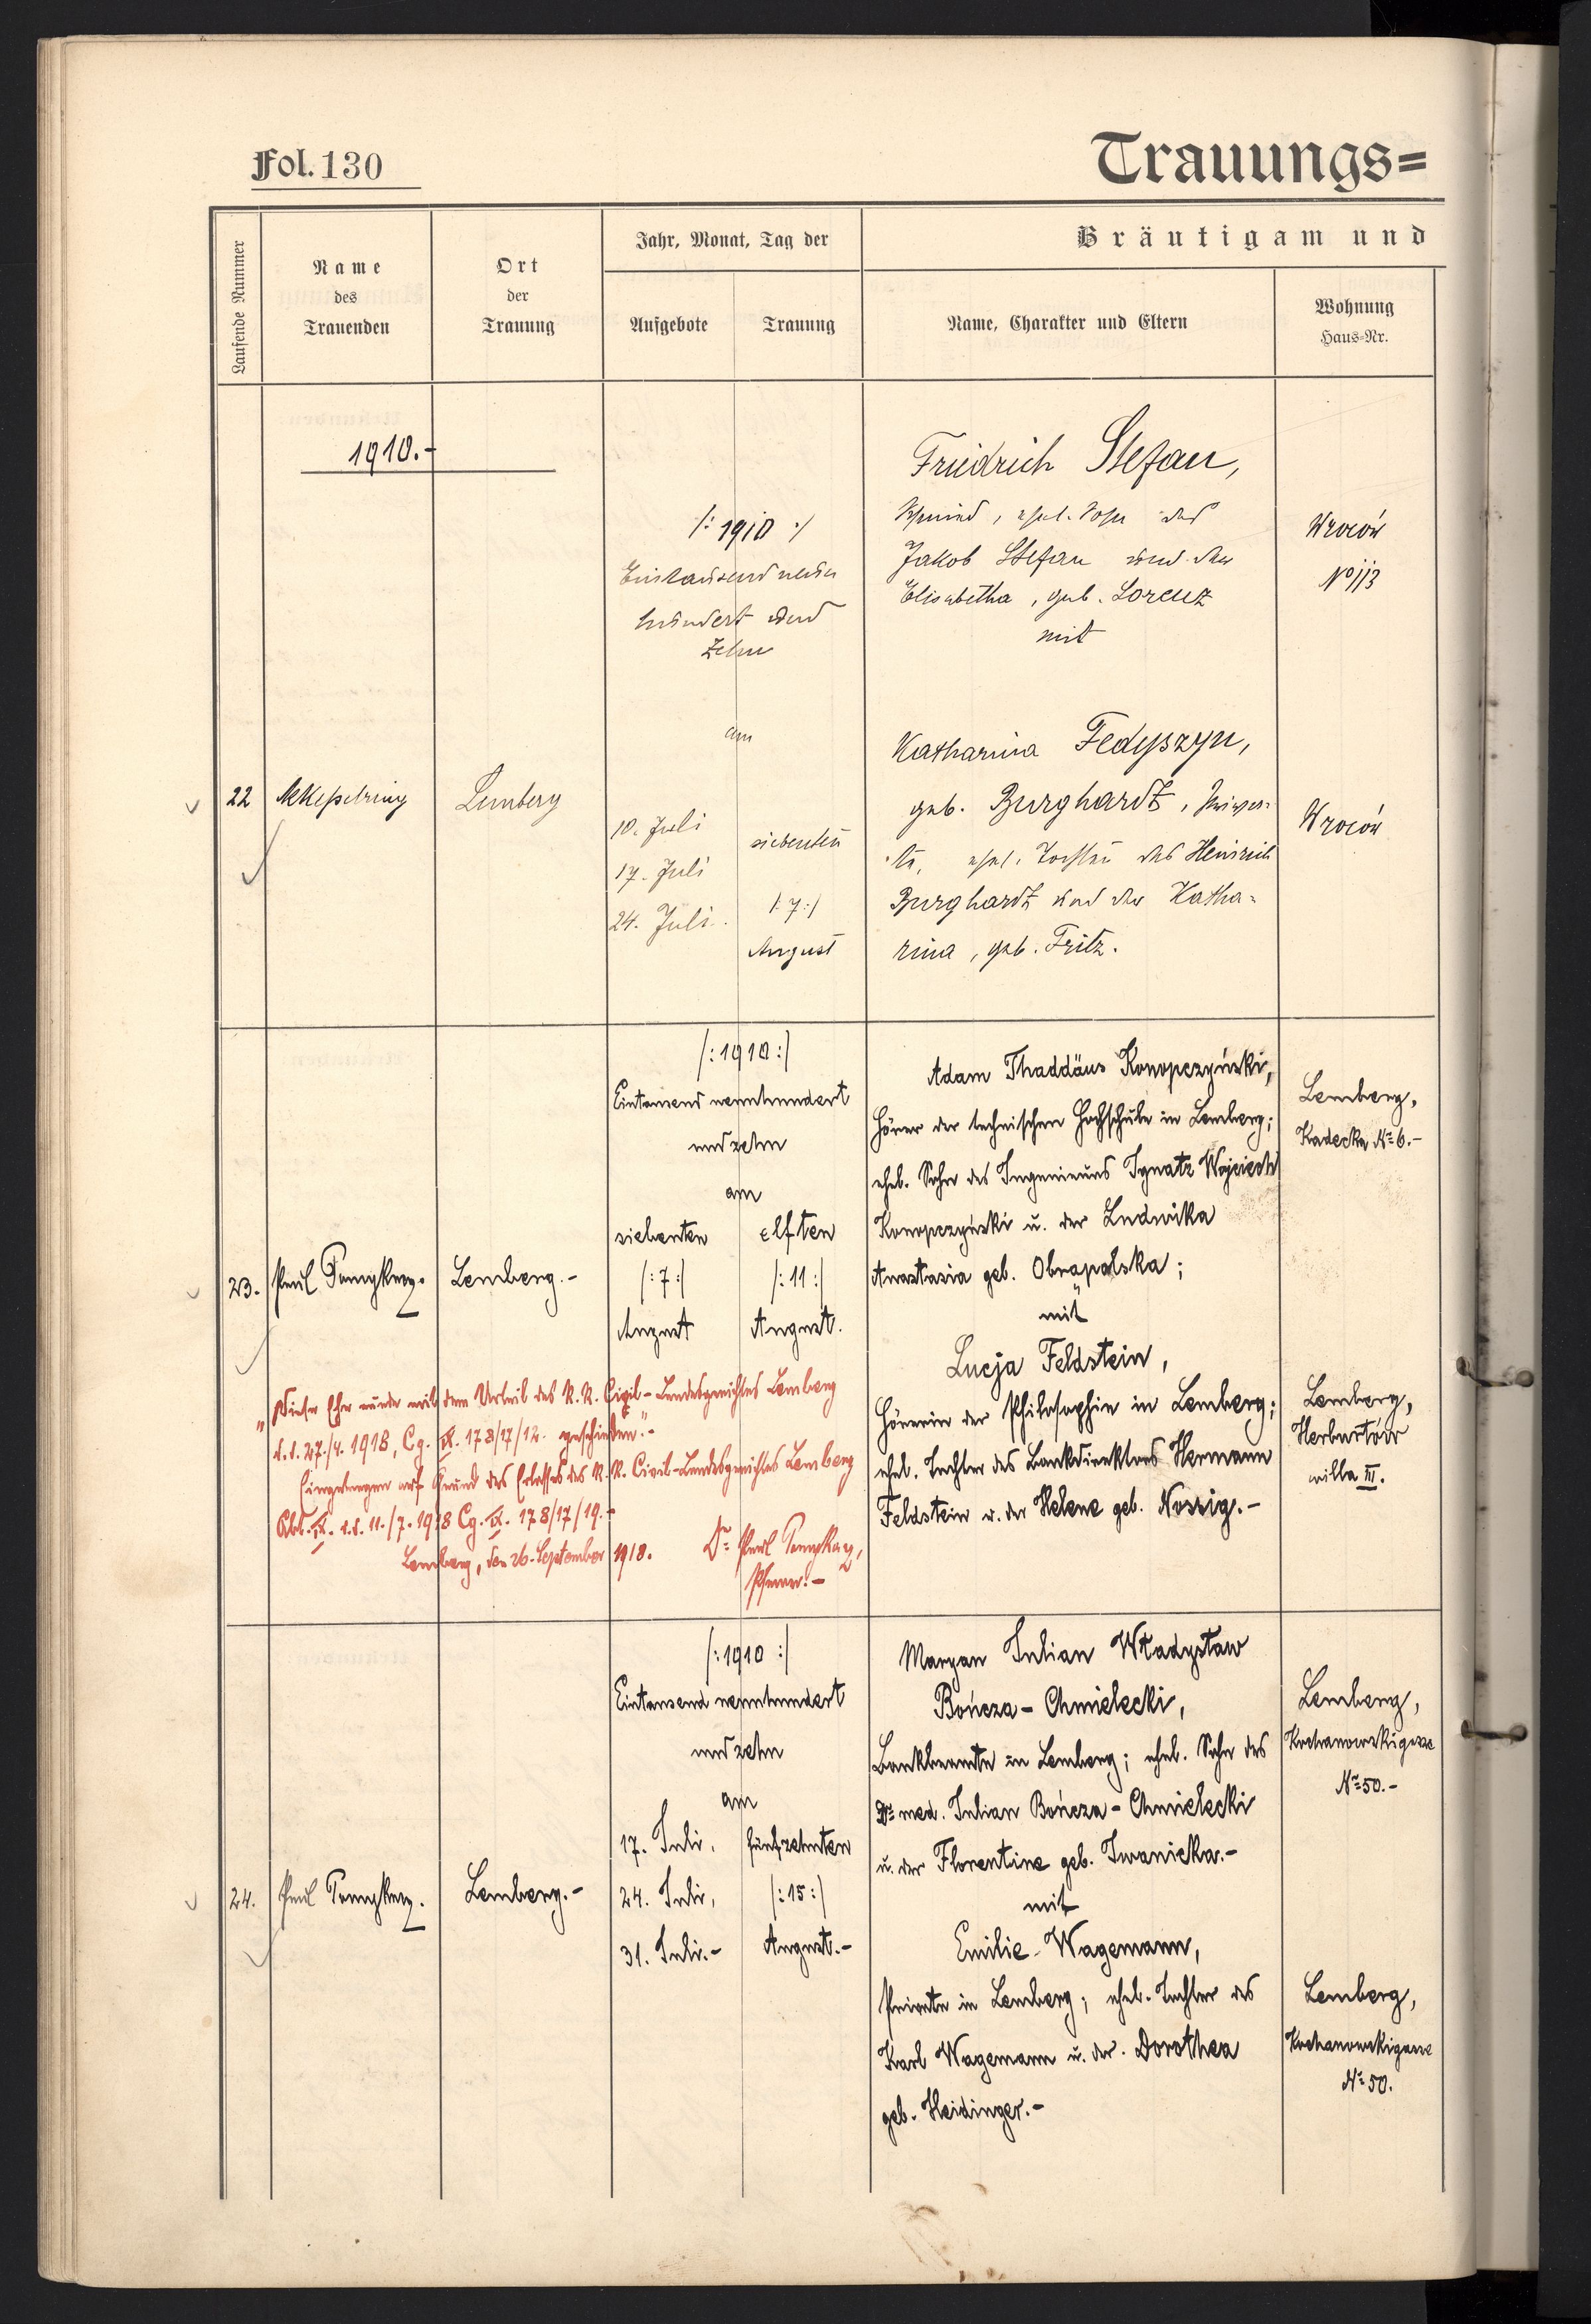 Fol. 130
Trauungs=
Laufende Nummer
Name
des
Trauenden
Ort
der
Trauung
Jahr, Monat, Tag der
Aufgebote
Trauung
Bräutigam und
Name, Charakter und Eltern
Wohnung
Haus=Nr.
1910.-
/: 1910 :/
Eintausend neun
hundert und
zehn
am
22
Lemberg
10. Juli
17. Juli
24. Juli
siebenten
/:7:/
August
Friedrich Stefan,
Schmied, ehel. Sohn des
Jakob Stefan und der
Elisabetha, geb. Lorenz
mit
Katharina Fedyszyn,
geb. Burghardt,
ehel. Tochter des Heinrich
Burghardt und der Katha=
rina, geb. Fritz.
Wroców
No 113
Wroców
23.
Paul
Lemberg.-
/:1910:/
Eintausend neunhundert
und zehn
am
siebenten
/:7:/
August
elften
/:11:/
August.
Adam Thaddäus Konopczyński,
Hörer der technischen Hochschule in Lemberg;
ehel. Sohn des Ingenieurs Ignatz Wojciech
Konopczyński u. der Ludwika
Anastasia geb. Obrąpalska;
mit
Lucja Feldstein,
Hörerin der Philosophie in Lemberg;
ehel. Tochter des Bankdirektors Hermann
Feldstein u. der Helene geb. Nossig.-
Lemberg,
Kadecka No 6.-
Lemberg,
Herburtów
villa III.
"Diese Ehe wurde mit dem Urteil des K.K. Civil-Landesgerichtes Lemberg
d.d. 27./4. 1918, Cg. IX. 178/17/12. geschieden."-
Eingetragen auf Grund des Erlasses des K.K. Civil-Landesgerichtes Lemberg
Abt. IX. d.d. 11./7. 1918 Cg. IX. 178/17/19.-
Lemberg, den 26. September 1918.
Dr Paul
Pfarrer.-
24.
Paul
Lemberg.-
/:1910:/
Eintausend neunhundert
und zehn
am
17. Juli,
24. Juli,
31. Juli.-
fünfzehnten
/:15:/
August.-
Maryan Julian Władysław
Bończa-Chmielecki,
Bankbeamte in Lemberg; ehel. Sohn des
Dr med. Julian Bończa-Chmielecki
u. der Florentine geb. Iwanicka.-
mit
Emilie Wagemann,
Private in Lemberg; ehel. Tochter des
Karl Wagemann u. der Dorothea
geb. Heidinger.-
Lemberg,
Kochanowskigasse
No 50.-
Lemberg,
Kochanowskigasse
No 50.